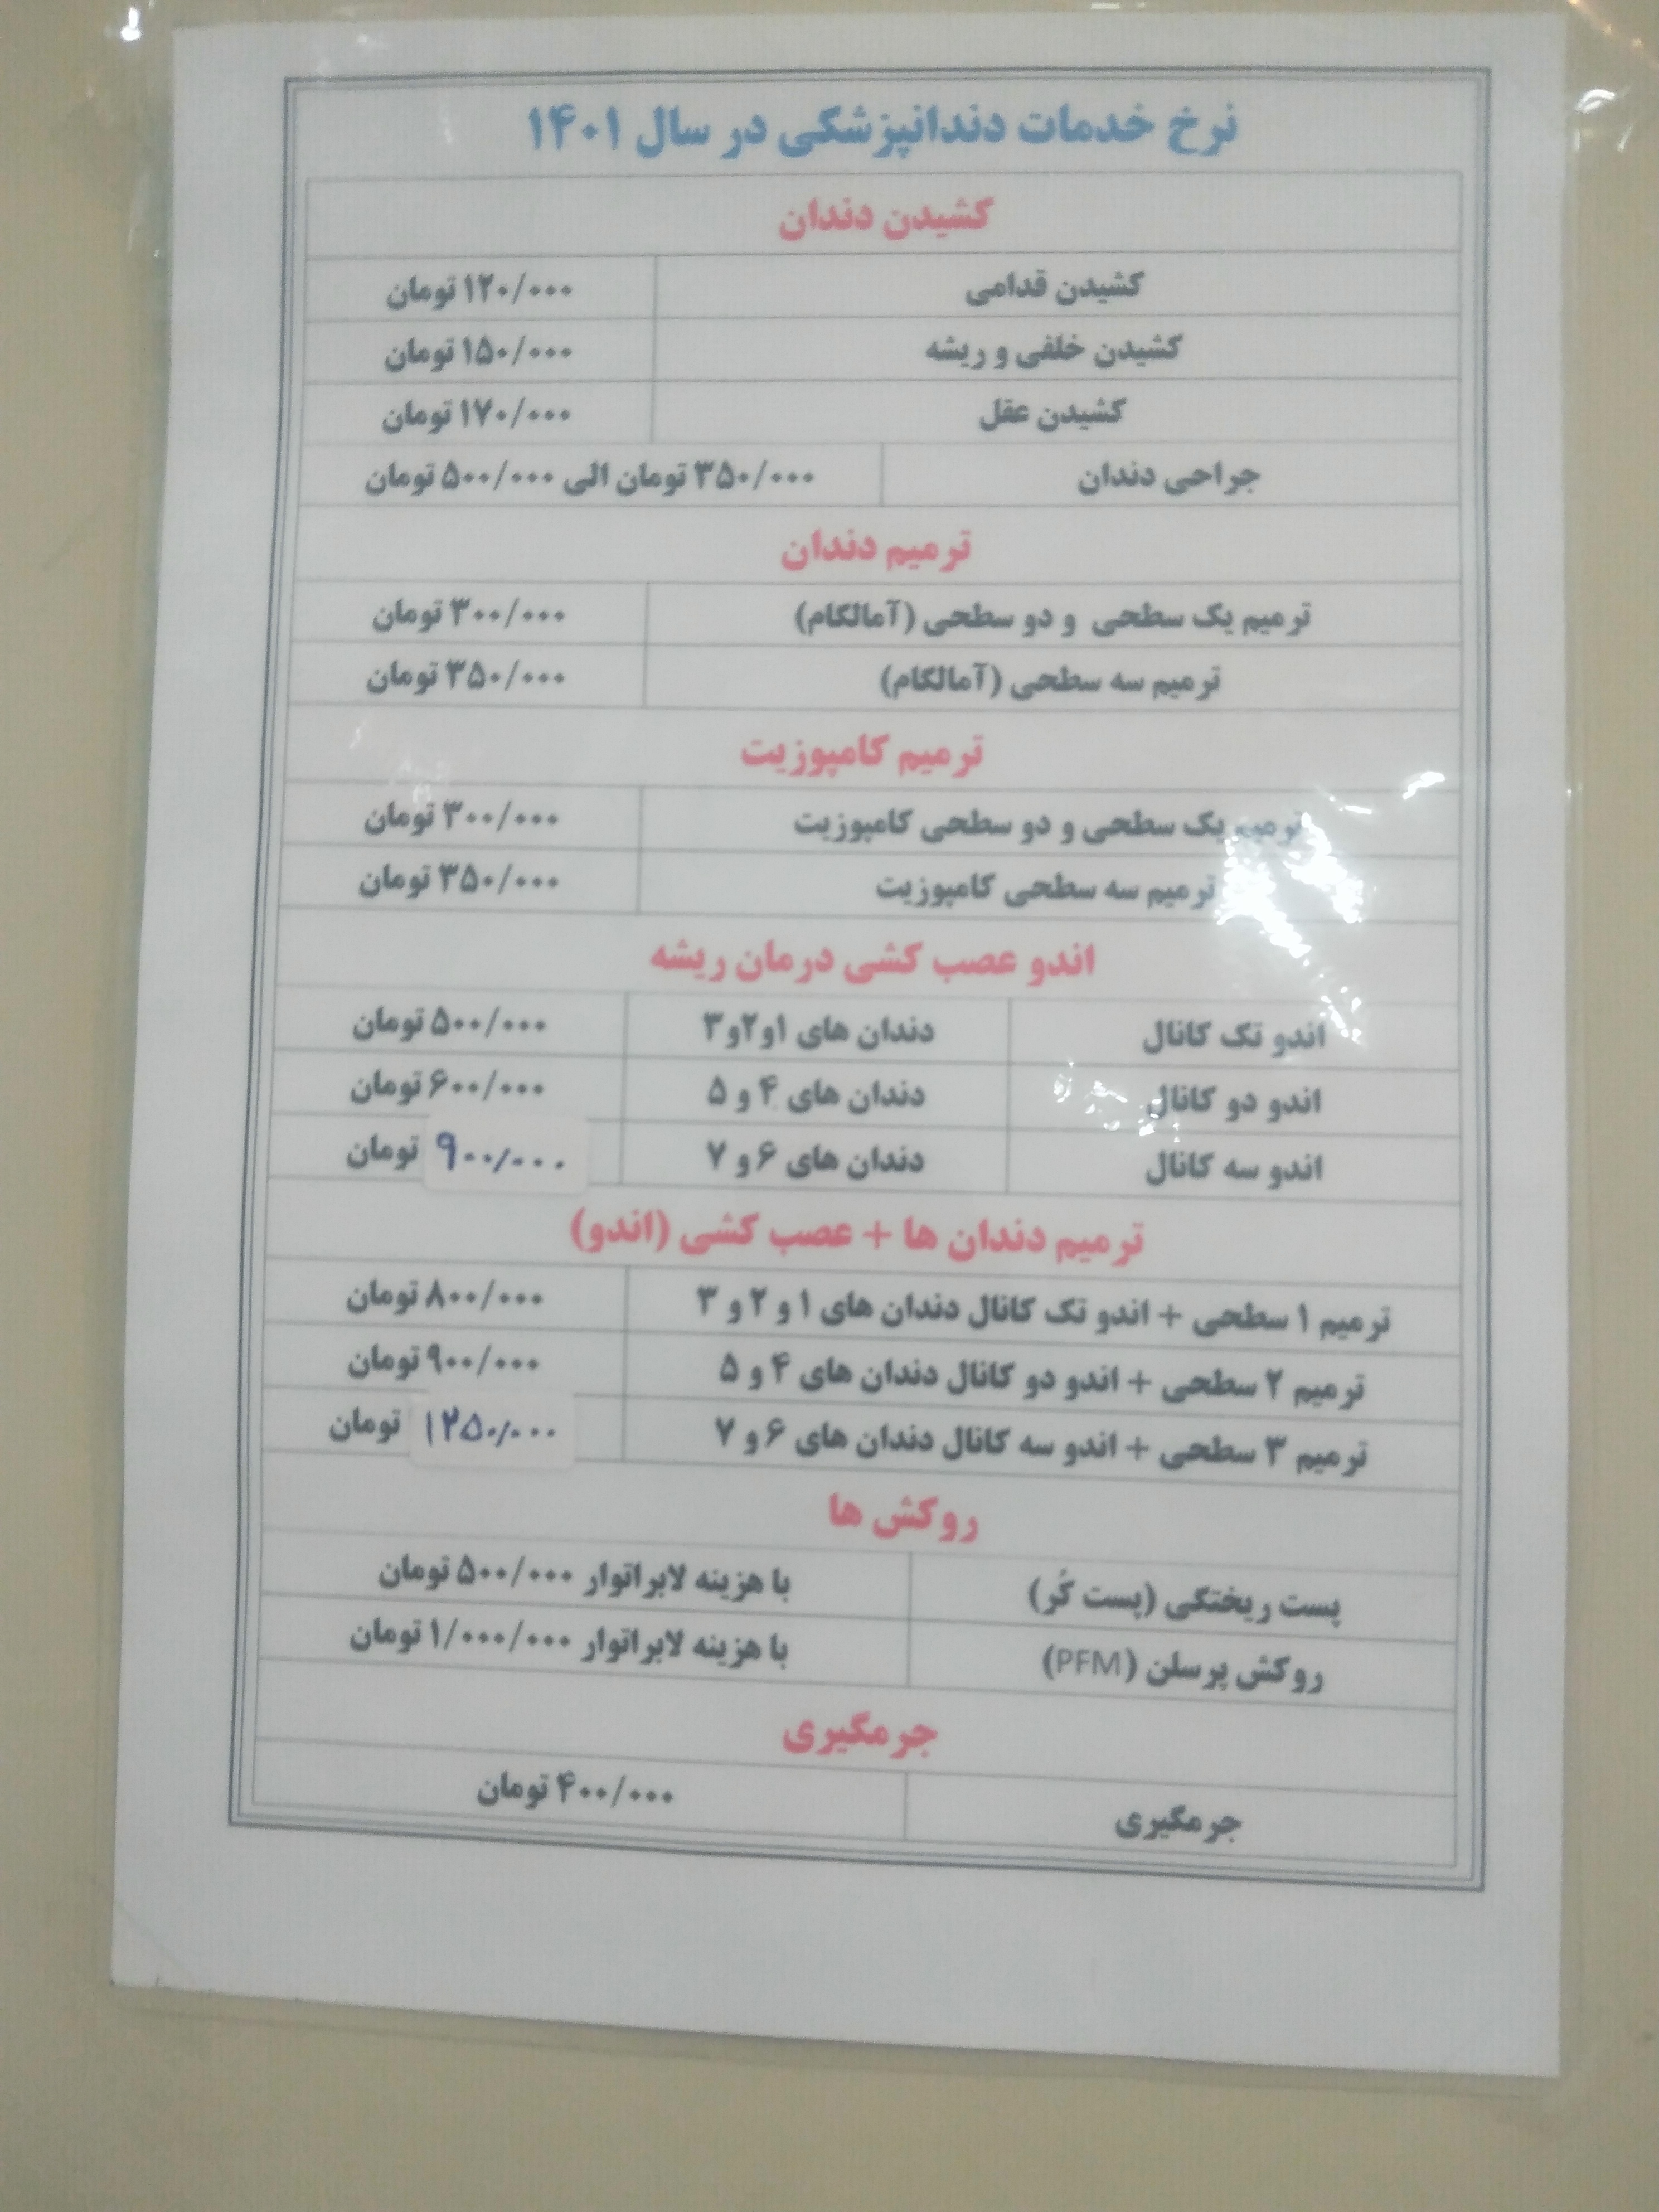 نرخ خدمات دندانپزشکی در سال ۱۴۰۱
کشیدن دندان
کشیدن قدامی ۱۲۰/۰۰۰ تومان
کشیدن خلفی و ریشه ۱۵۰/۰۰۰ تومان
کشیدن عقل ۱۷۰/۰۰۰ تومان
جراحی دندان ۳۵۰/۰۰۰ تومان الی ۵۰۰/۰۰۰ تومان
ترمیم دندان
ترمیم یک سطحی و دو سطحی (آمالگام) ۳۰۰/۰۰۰ تومان
ترمیم سه سطحی (آمالگام) ۳۵۰/۰۰۰ تومان
ترمیم کامپوزیت
ترمیم یک سطحی و دو سطحی کامپوزیت ۳۰۰/۰۰۰ تومان
ترمیم سه سطحی کامپوزیت ۳۵۰/۰۰۰ تومان
اندو عصب کشی درمان ریشه
اندو تک کانال دندان های ۱و۲و۳ ۵۰۰/۰۰۰ تومان
اندو دو کانال دندان های ۴ و ۵ ۶۰۰/۰۰۰ تومان
اندو سه کانال دندان های ۶ و ۷ ۹۰۰/۰۰۰ تومان
ترمیم دندان ها + عصب کشی (اندو)
ترمیم ۱ سطحی + اندو تک کانال دندان های ۱ و ۲ و ۳ ۸۰۰/۰۰۰ تومان
ترمیم ۲ سطحی + اندو دو کانال دندان های ۴ و ۵ ۹۰۰/۰۰۰ تومان
ترمیم ۳ سطحی + اندو سه کانال دندان های ۶ و ۷ ۱۲۵۰/۰۰۰ تومان
روکش ها
پست ریختگی (پست کُر) با هزینه لابراتوار ۵۰۰/۰۰۰ تومان
روکش پرسلن (PFM) با هزینه لابراتوار ۱/۰۰۰/۰۰۰ تومان
جرمگیری
جرمگیری ۴۰۰/۰۰۰ تومان